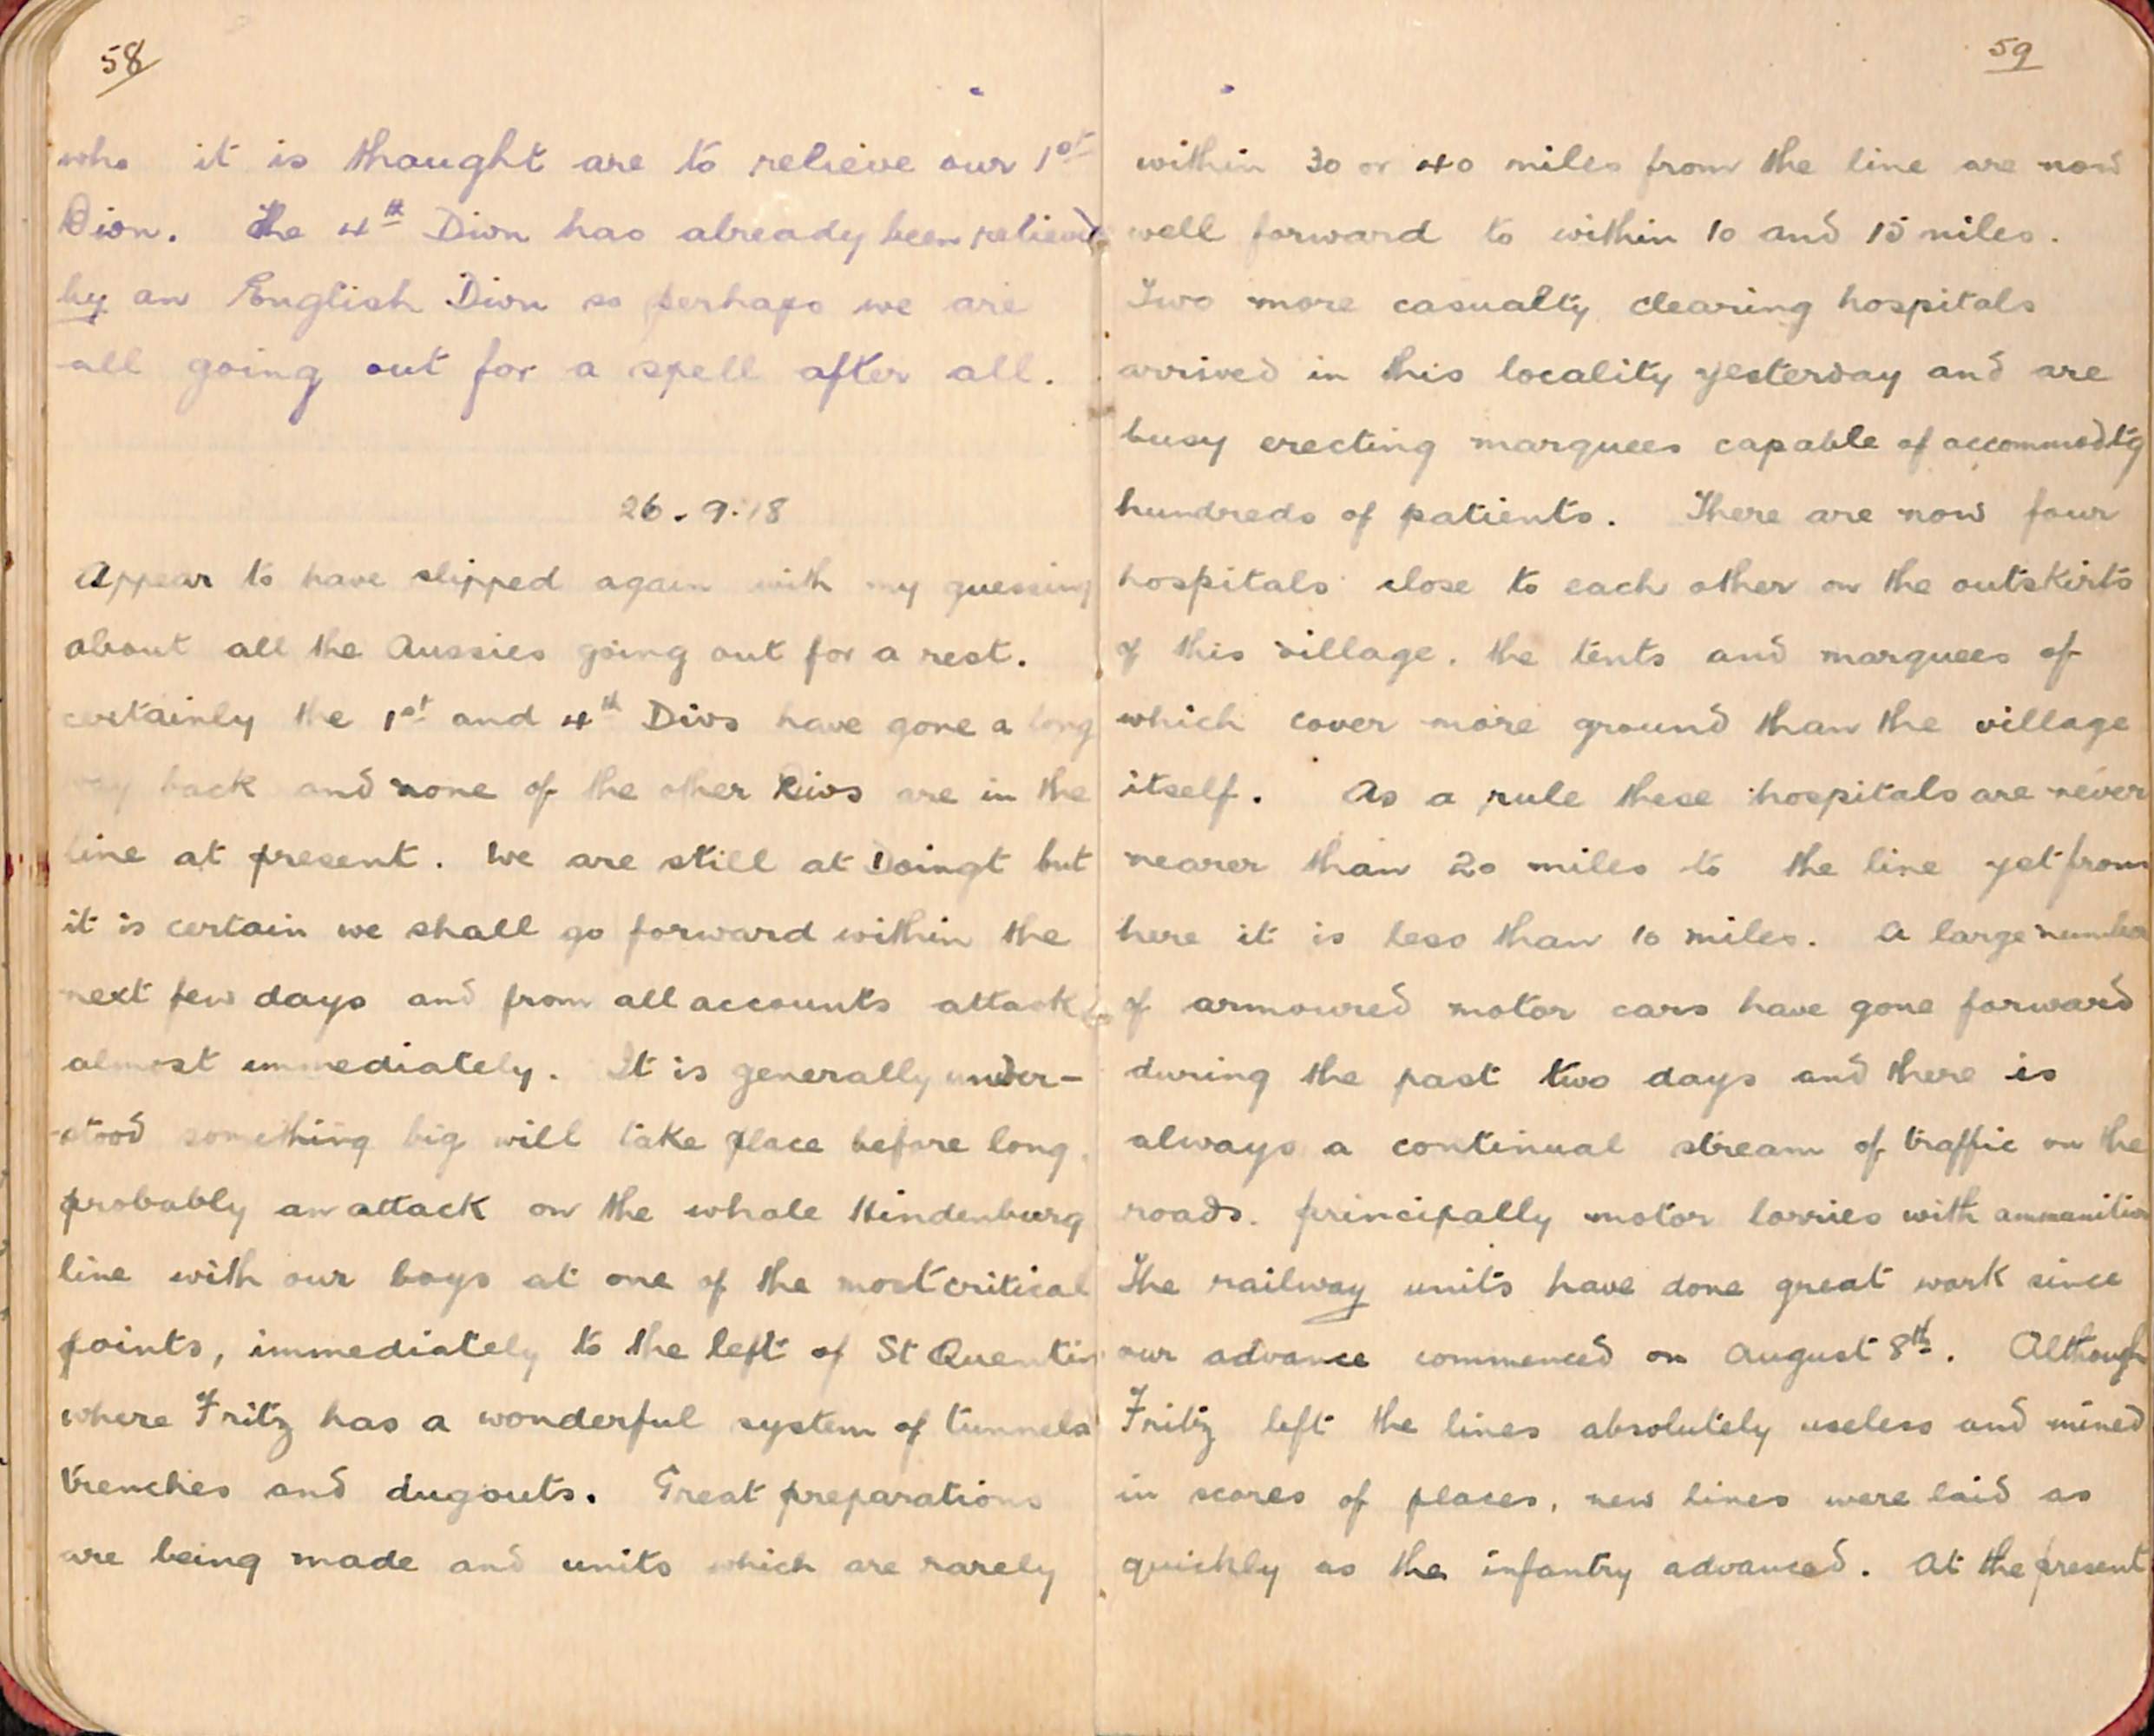 58
who it is thought are to relieve our 1st
Divn. The 4th Divn has already been relieved
by an English Divn so perhaps we are
all going out for a spell after all.
26.9.18
Appear to have slipped again with my guessing
about all the Aussies going out for a rest.
certainly the 1st and 4th Divs have gone a long
way back and none of the other Divs are in the
line at present. We are still at Doingt but
it is certain we shall go forward within the
next few days and from all accounts attack
almost immediately. It is generally under-
-stood something big will take place before long,
probably an attack on the whole Hindenburg
line with our boys at one of the most critical
points, immediately to the left of St Quentin
where Fritz has a wonderful system of tunnels
trenches and dugouts. Great preparations
are being made and units which are rarely
59
within 30 or 40 miles from the line are now
well forward to within 10 and 15 miles.
Two more casualty clearing hospitals
arrived in this locality yesterday and are
busy erecting marquees capable of accommodtg
hundreds of patients. There are now four
hospitals close to each other on the outskirts
of this village, the tents and marquees of
which cover more ground than the village
itself. As a rule these hospitals are never
nearer than 20 miles to the line yet from
here it is less than 10 miles. A large number
of armoured motor cars have gone forward
during the past two days and there is
always a continual stream of traffic on the
roads. principally motor lorries with ammunition
The railway units have done great work since
our advance commenced on August 8th. Although
Fritz left the lines absolutely useless and mined
in scores of places, new lines were laid as
quickly as the infantry advanced. At the present